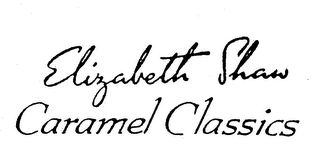 Elizabeth Shaw
Caramel Classics